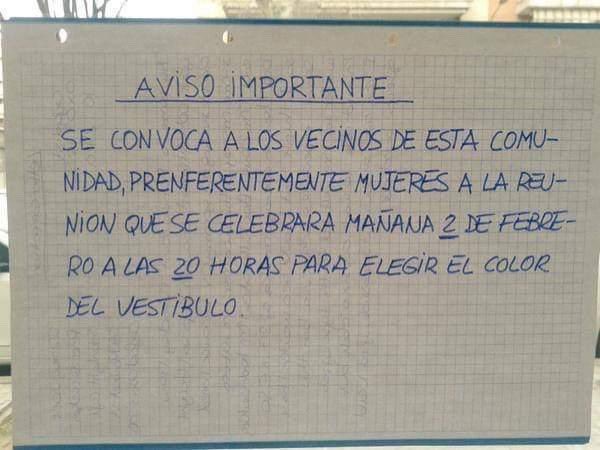 AVISO IMPORTANTE
SE CONVOCA A LOS VECINOS DE ESTA COMU-
NIDAD, PRENFERENTEMENTE MUJERES A LA REU-
NION QUE SE CELEBRARA MAÑANA 2 DE FEBRE-
RO A LAS 20 HORAS PARA ELEGIR EL COLOR
DEL VESTIBULO.